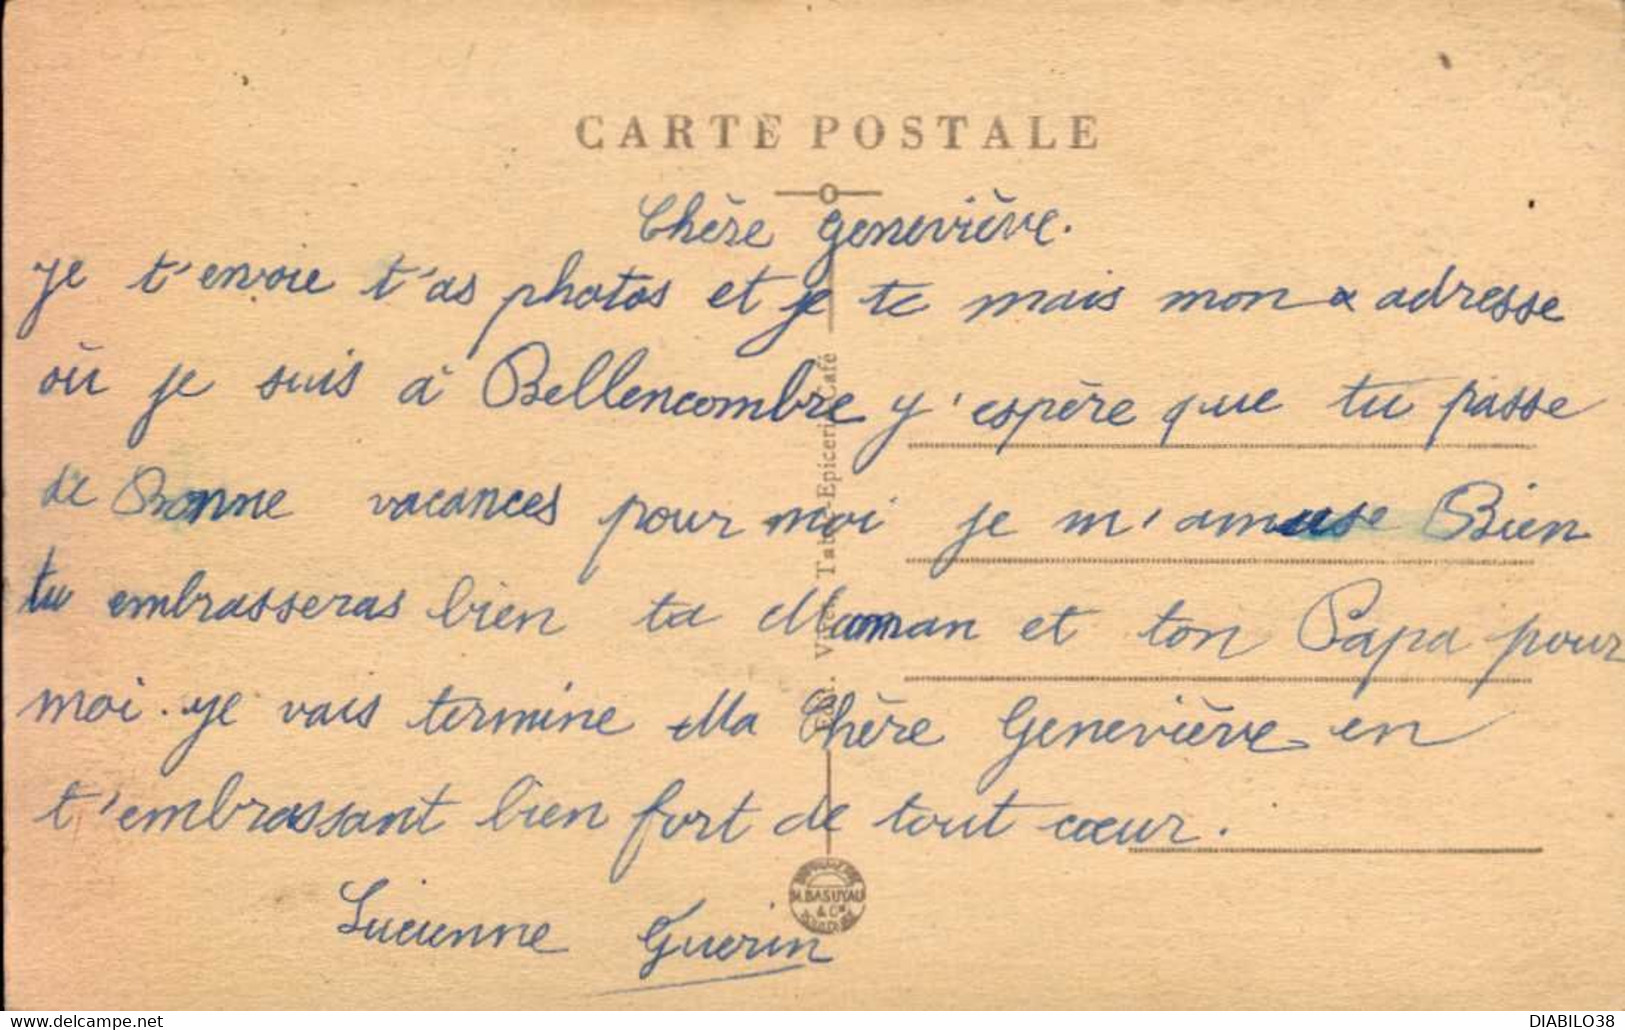 CARTE POSTALE
Chère Geneviève.
Je t'envoie t'as photos et je te mais mon adresse
où je suis à Bellencombre j'espère que tu passe
de Bonne vacances pour moi je m'amuse Bien
tu embrasseras bien ta Maman et ton Papa pour
moi. je vais termine Ma Chère Geneviève en
t'embrassant bien fort de tout cœur.
Lucienne Guerin
Tabac-Epicerie-Café
M. BASUYAU
& Cie
delcampe.net
DIABILO38